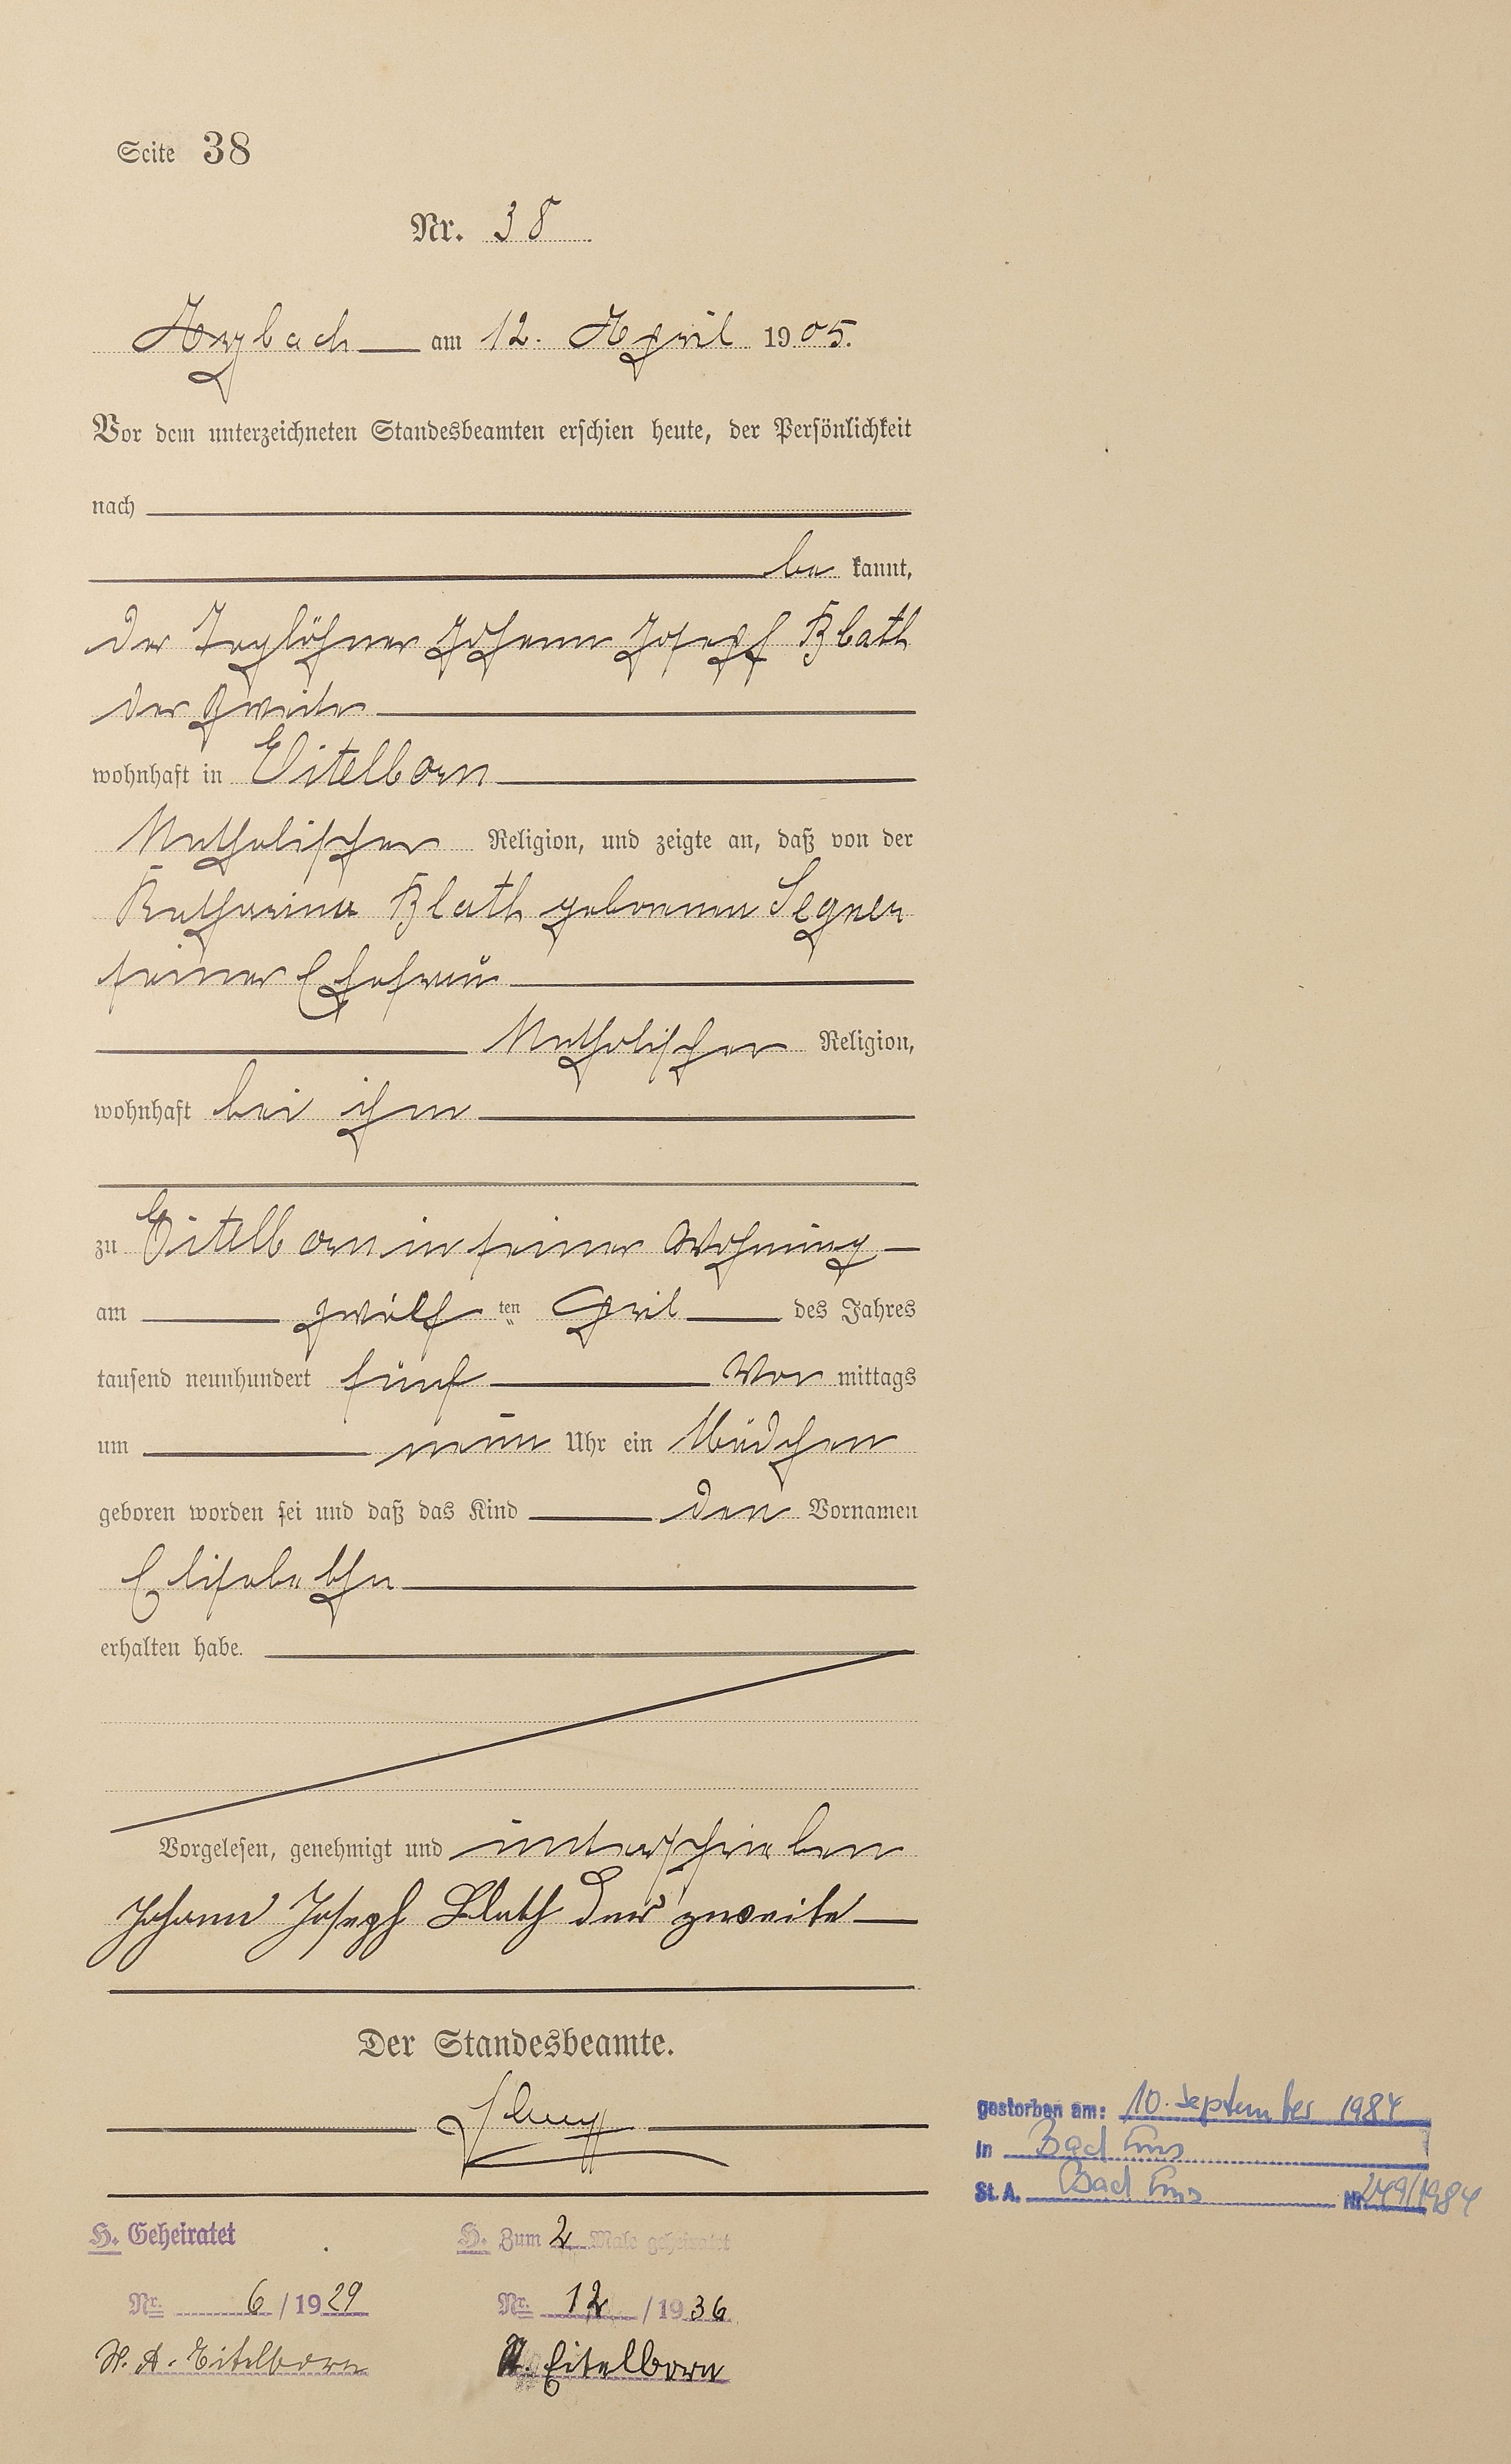 Seite 38
Nr. 38
Arzbach am 12. April 1905.
Vor dem unterzeichneten Standesbeamten erschien heute, der Persönlichkeit
nach
be kannt,
der Taglöhner Johann Joseph Blath
der Zweite
wohnhaft in Eitelborn
Katholischer Religion, und zeigte an, daß von der
Katharina Blath geborenen Segner
seiner Ehefrau
Katholischer Religion,
wohnhaft bei ihm
zu Eitelborn in seiner Wohnung
am zwölf ten April des Jahres
tausend neunhundert fünf Vor mittags
um neun Uhr ein Mädchen
geboren worden sei und daß das Kind den Vornamen
Elisabetha
erhalten habe.
Vorgelesen, genehmigt und unterschrieben
Johann Joseph Blath der zweite
Der Standesbeamte.
gestorben am: 10. September 1984
in Bad Ems
St. A. Bad Ems Nr. 249/1984
H. Geheiratet
H. Zum 2 Male geheiratet
Nr. 6/1929
Nr. 12/1936
St. A. Eitelborn
Eitelborn